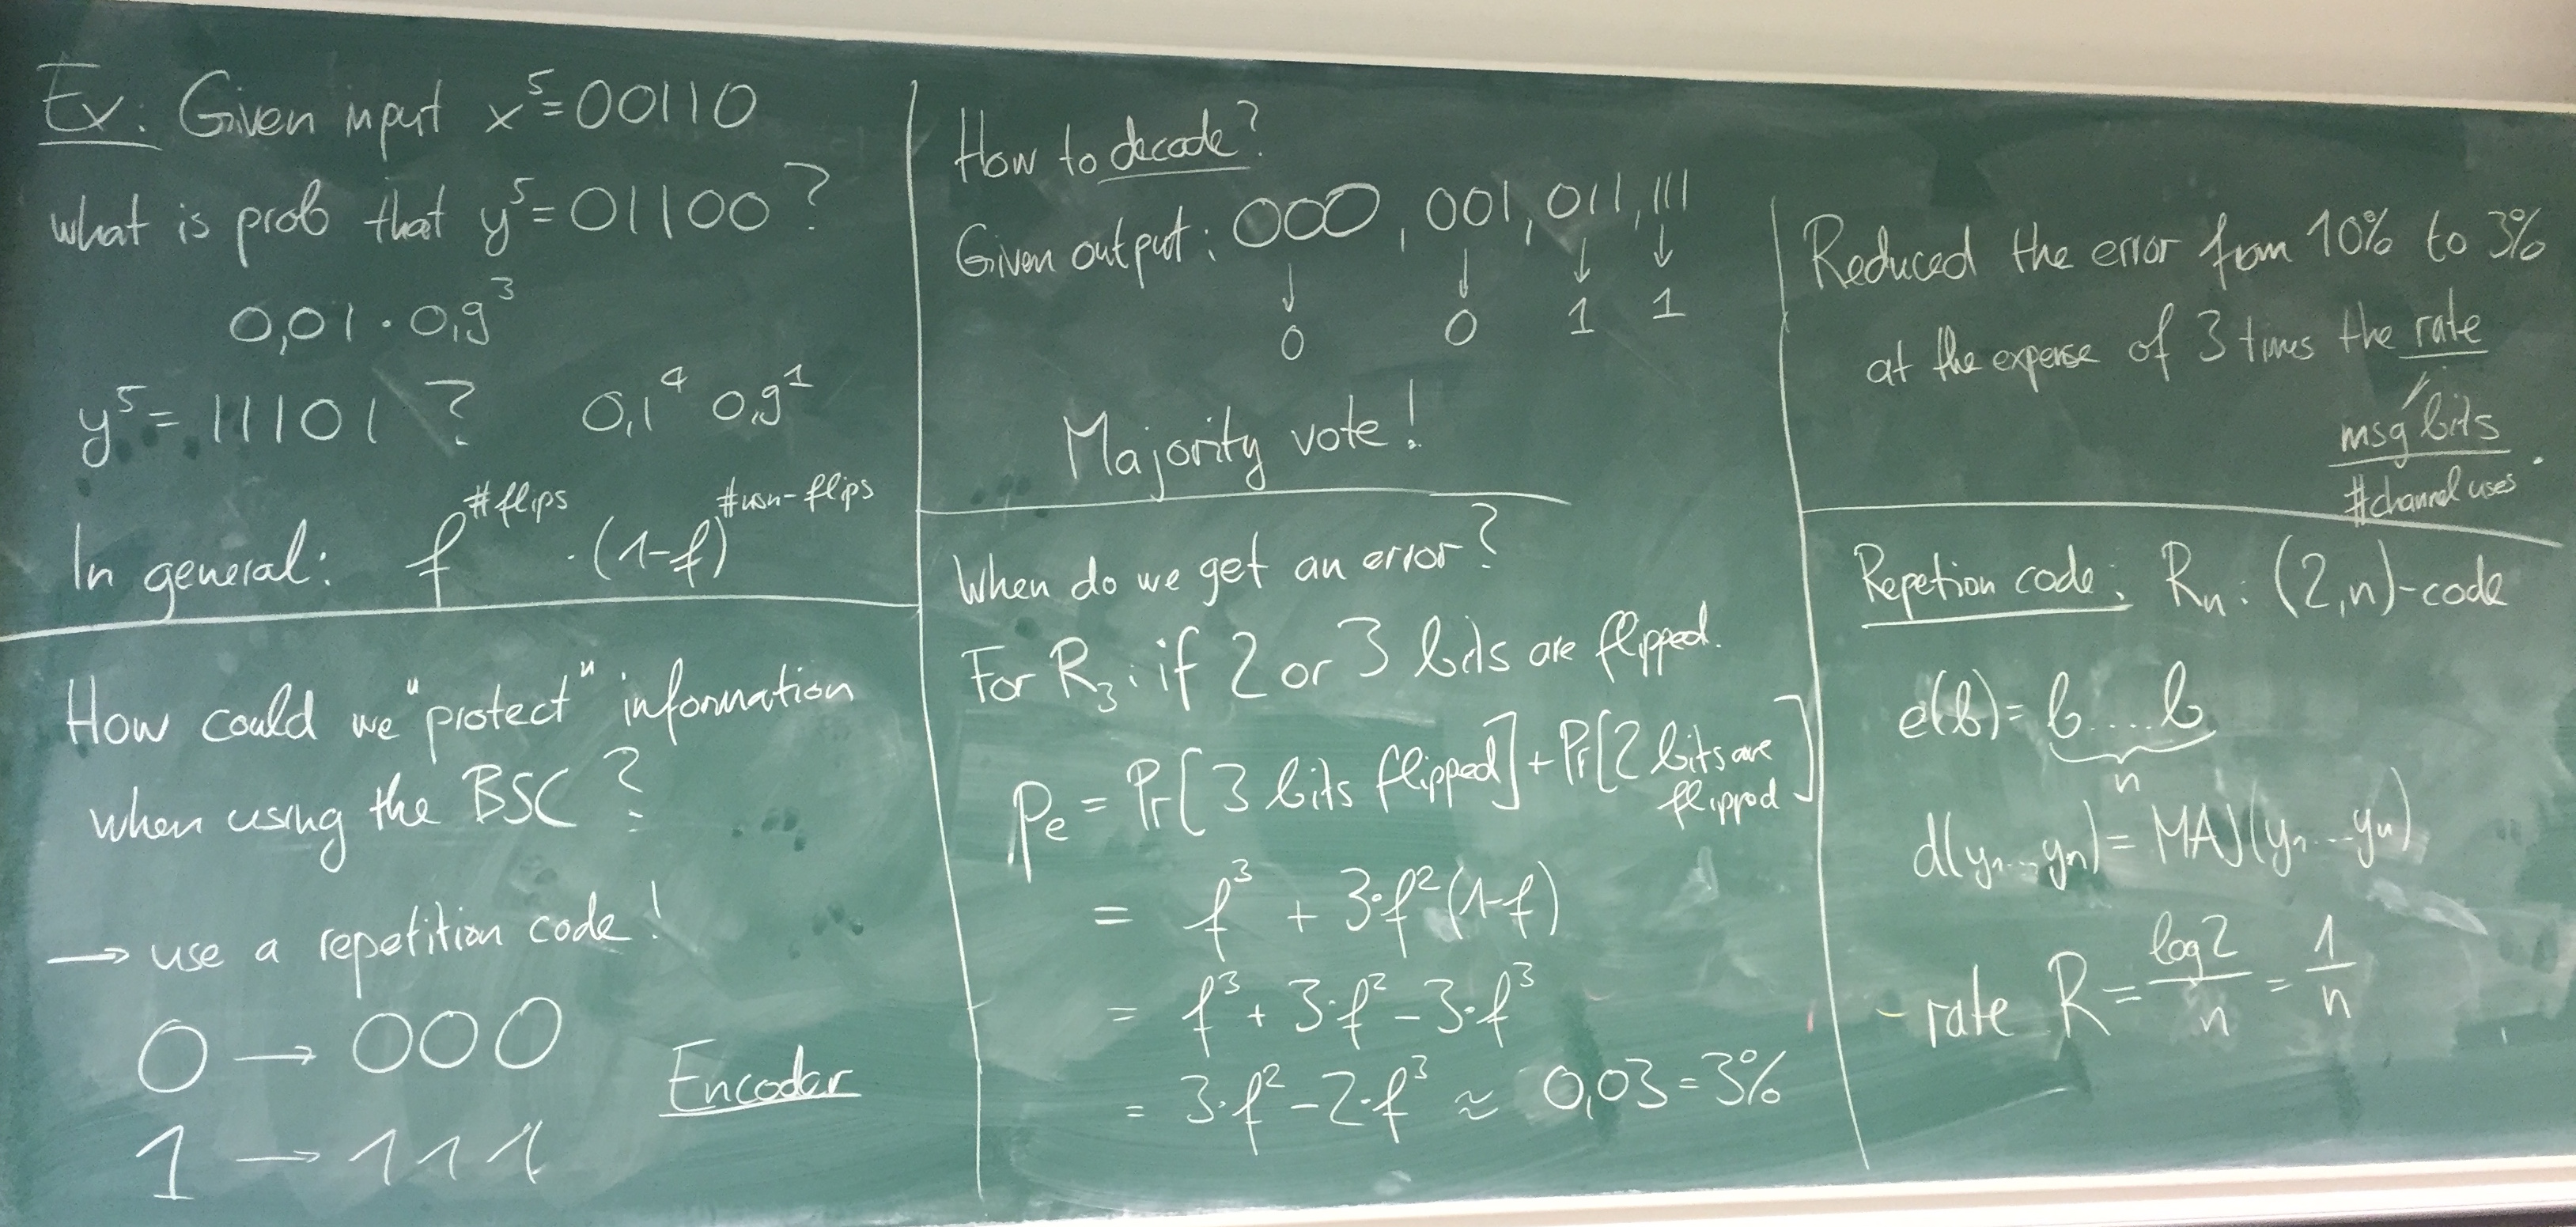 Ex: Given input x⁵=00110
what is prob that y⁵=01100?
0,01 · 0,9³
y⁵= 11101 ? 0,1⁴ 0,9¹
In general: f^#flips · (1-f)^#non-flips
How could we "protect" information
when using the BSC?
→ use a repetition code!
0 → 000
Encoder
1 → 111
How to decode?
Given output: 000, 001, 011, 111
↓ ↓ ↓ ↓
0 0 1 1
Majority vote!
When do we get an error?
For R₃: if 2 or 3 bits are flipped.
Pe = Pr[3 bits flipped] + Pr[2 bits are
flippod]
= f³ + 3·f²(1-f)
= f³ + 3·f² - 3·f³
= 3·f² - 2·f³ ≈ 0,03 = 3%
Reduced the error from 10% to 3%
at the expense of 3 times the rate
msg bits
#channel uses.
Repetion code: Rn: (2,n)-code
e(b)= b....b
n
d(y₁...yn)= MAJ(y₁...yn)
- rate R = log2/n = 1/n